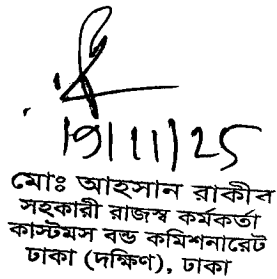 19/11/25
মোঃ আহসান রাকীব
সহকারী রাজস্ব কর্মকর্তা
কাস্টমস বন্ড কমিশনারেট
ঢাকা (দক্ষিণ), ঢাকা